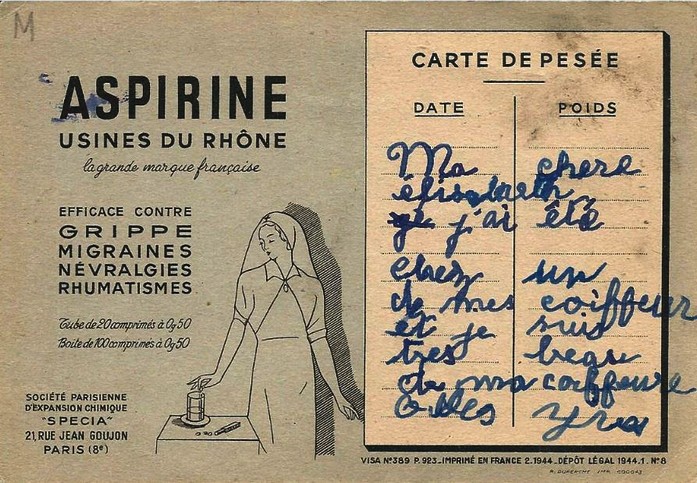 M
ASPIRINE
USINES DU RHÔNE
la grande marque française
EFFICACE CONTRE
GRIPPE
MIGRAINES
NÉVRALGIES
RHUMATISMES
Tube de 20 comprimés à 0g50
Boite de 100 comprimés à 0g50
SOCIÉTÉ PARISIENNE
D'EXPANSION CHIMIQUE
"SPECIA"
21, RUE JEAN GOUJON
PARIS (8e)
CARTE DE PESÉE
DATE POIDS
Ma chere
j'ai été
chez un
de mes coiffeur
et je suis
tres beau
de ma coiffeure
VISA N°389 P. 923_IMPRIMÉ EN FRANCE 2.1944_DÉPÔT LÉGAL 1944.1. N°8